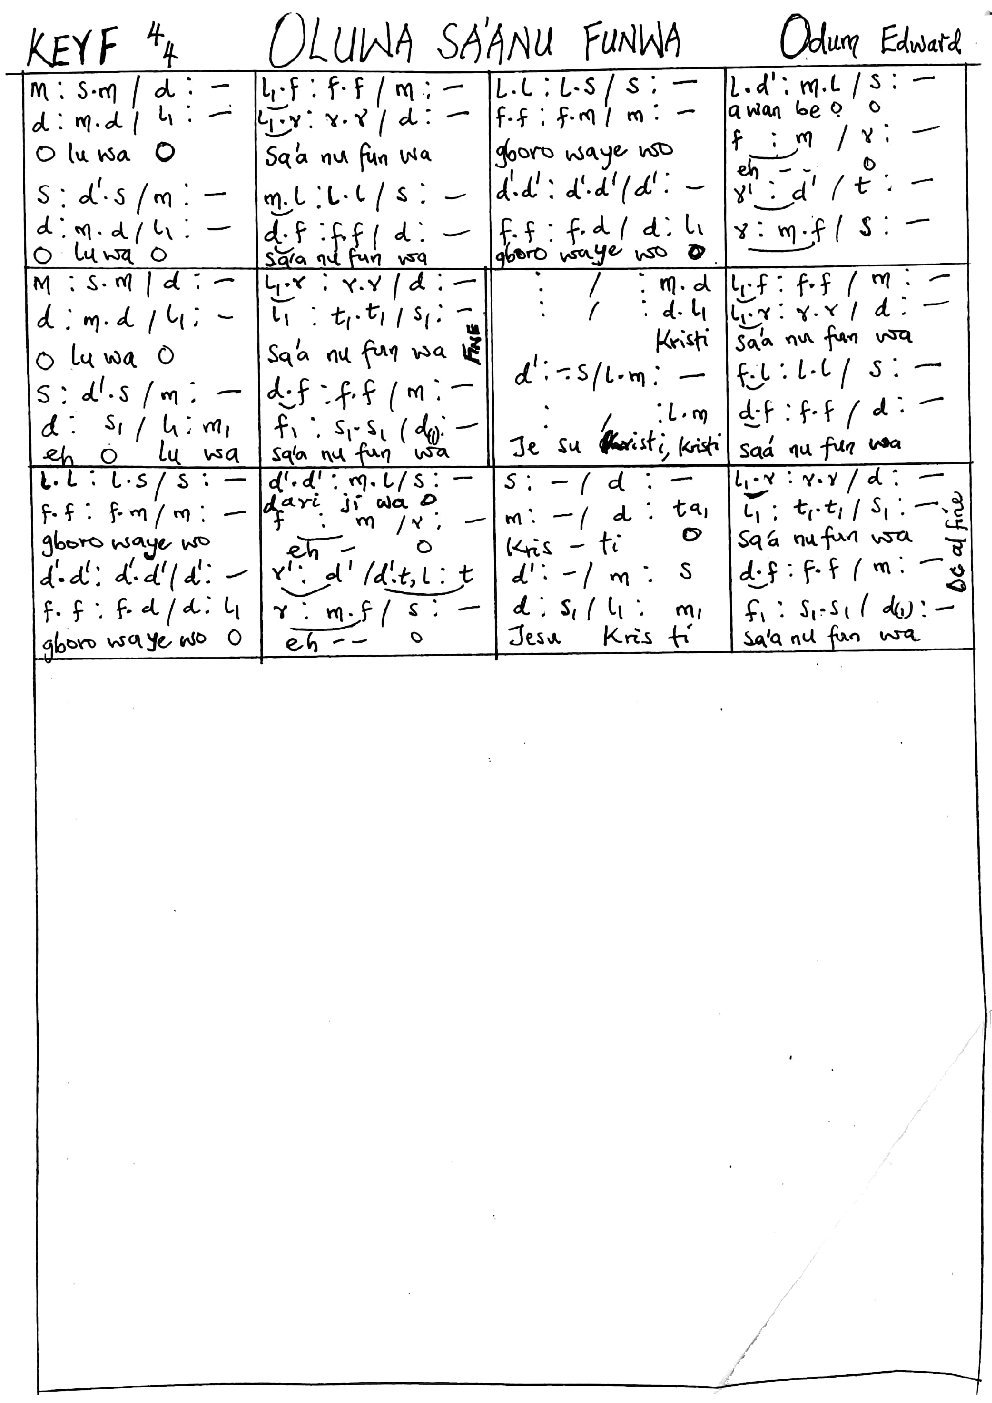 KEY F 4/4 OLUWA SA'ANU FUNWA Odum Edward
m : s.m / d : —
d : m.d / l₁ : —
O lu wa O
s : d'.s / m : —
d : m.d / l₁ : —
O lu wa O
l₁.f : f.f / m : —
l₁.r : r.r / d : —
Sa'a nu fun wa
m.l : l.l / s : —
d.f : f.f / d : —
sa'a nu fun wa
l.l : l.s / s : —
f.f : f.m / m : —
gboro waye wo
d'.d' : d'.d' / d' : —
f.f : f.d / d : l₁
gboro waye wo O
l.d' : m.l / s : —
a wan be O O
f : m / r : —
eh - - O
r' : d' / t : —
r : m.f / s : —
m : s.m / d : —
d : m.d / l₁ : —
O lu wa O
s : d'.s / m : —
d : s₁ / l₁ : m₁
eh O lu wa
l₁.r : r.r / d : —
l₁ : t₁.t₁ / s₁ : —
Sa'a nu fun wa
d.f : f.f / m : —
f₁ : s₁.s₁ / d(1) : —
sa'a nu fun wa
FINE
: / : m.d
: / : d.l₁
Kristi
d' : -.s / l.m : —
: / : l.m
Je su Kristi, Kristi
l₁.f : f.f / m : —
l₁.r : r.r / d : —
Sa'a nu fun wa
f.l : l.l / s : —
d.f : f.f / d : —
saá nu fun wa
l.l : l.s / s : —
f.f : f.m / m : —
gboro waye wo
d'.d' : d'.d' / d' : —
f.f : f.d / d : l₁
gboro waye wo O
d'.d' : m.l / s : —
dari ji wa O
f : m / r : —
eh - O
r' : d' / d'.t,l : t
r : m.f / s : —
eh - - O
s : — / d : —
m : — / d : ta₁
Kris - ti O
d' : — / m : s
d : s₁ / l₁ : m₁
Jesu Kris ti
l₁.r : r.r / d : —
l₁ : t₁.t₁ / s₁ : —
Sa'a nu fun wa
d.f : f.f / m : —
f₁ : s₁.s₁ / d(1) : —
sa'a nu fun wa
Dc al fine